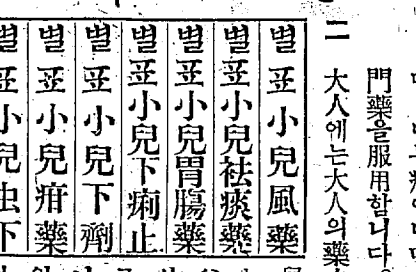 門藥을服用합니다
二
大人에는大人의藥
별표小兒風藥
별표小兒袪痰藥
별표小兒胃腸藥
별표小兒下痢止
별표小兒下劑
별표小兒疳藥
별표小兒虫下